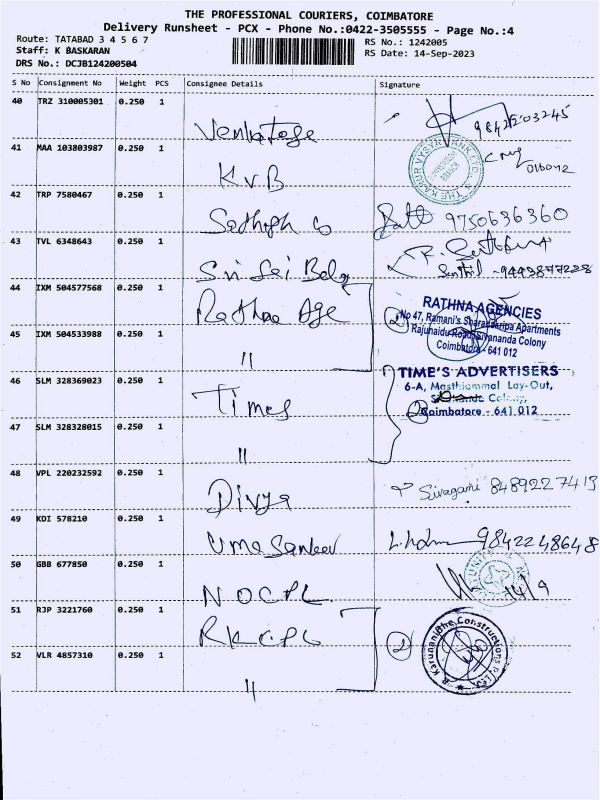 THE PROFESSIONAL COURIERS, COIMBATORE
Delivery Runsheet - PCX - Phone No.:0422-3505555 - Page No.:4
Route: TATABAD 3 4 5 6 7
RS No.: 1242005
Staff: K BASKARAN
RS Date: 14-Sep-2023
DRS No.: DCJB124200504
S No Consignment No Weight PCS Consignee Details Signature
40 TRZ 310005301 0.250 1 Venkatese 9842203245
41 MAA 103803987 0.250 1 KVB THE KARUR VYSYA BANK LTD.
42 TRP 7580467 0.250 1 Sathish 9750636360
43 TVL 6348643 0.250 1 Sri Sai Senthil - 9443877228
44 IXM 504577568 0.250 1 Rathna Age 2 RATHNA AGENCIES
No 47, Ramani's Sharadakripa Apartments
Rajunaidu Road, Sivananda Colony
Coimbatore - 641 012
45 IXM 504533988 0.250 1 "
46 SLM 328369023 0.250 1 Times TIME'S ADVERTISERS
6-A, Masthiammal Lay-Out,
Coimbatore - 641 012
47 SLM 328328015 0.250 1 "
48 VPL 220232592 0.250 1 Divya Sivagami 8489227413
49 KDI 578210 0.250 1 Uma Sanjeev 9842248648
50 GBB 677850 0.250 1 NOCPL 14/9
51 RJP 3221760 0.250 1 RKCPL 2
52 VLR 4857310 0.250 1 "